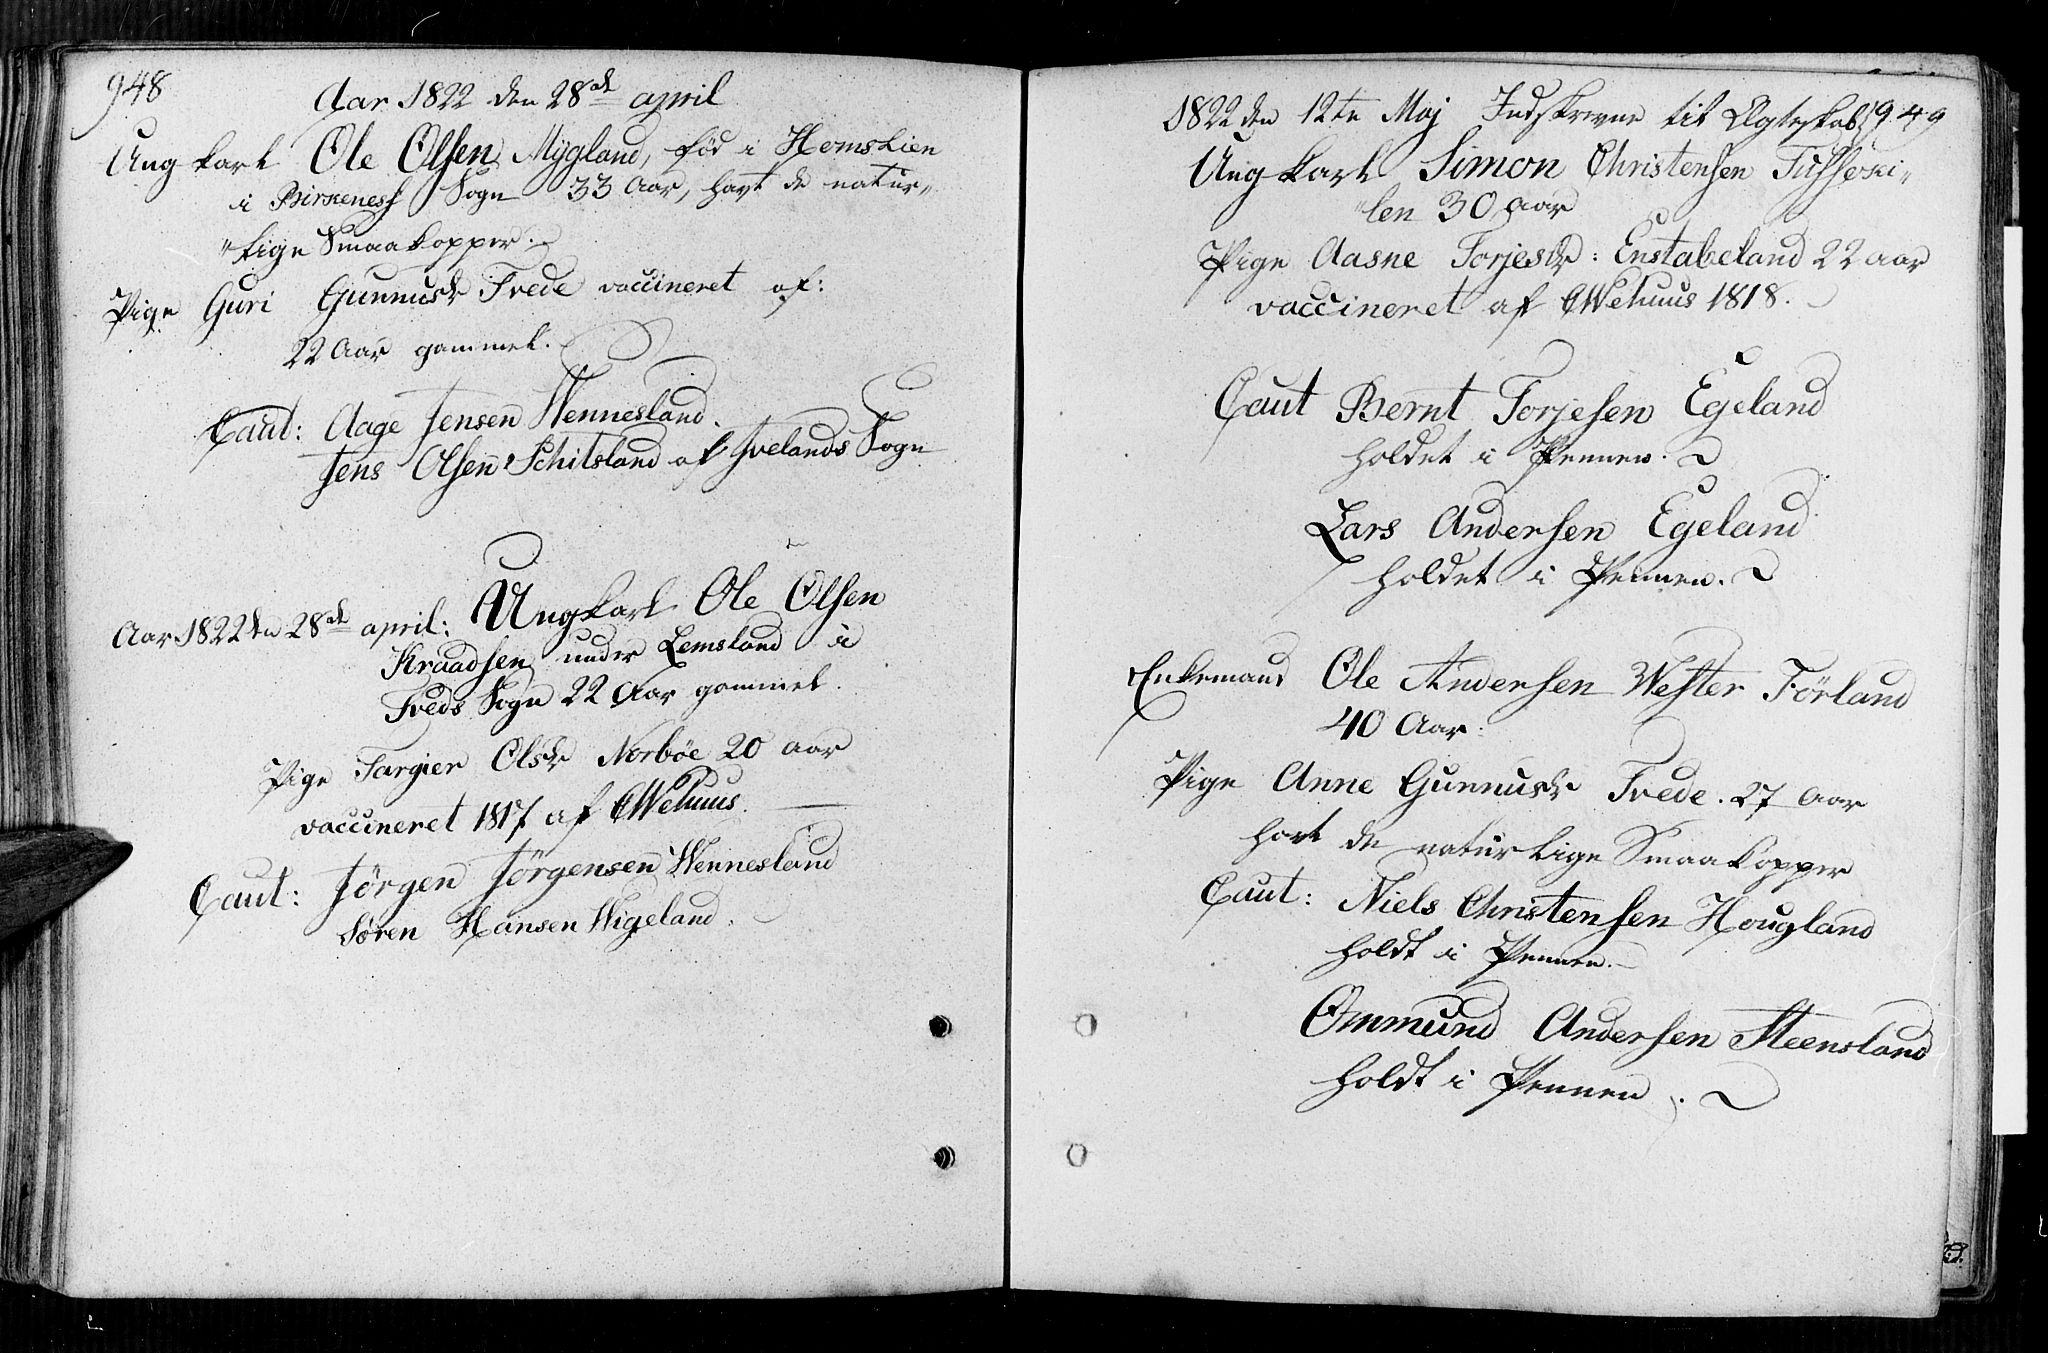 948
Aar 1822 den 28de april
Ung karl Ole Olsen Mÿgland, fød i Homslien
i Birkeness Sogn 33 Aar, havt de natür„
„lige Smaa Kopper.
Pige Guri Gunnusdr Trede vaccineret af:
22 Aar gammel.
Caut: Aage Jensen Wennesland.
Jens Olsen Schitsland af Ivelands Sogn
Aar 1822 den 28de april: Ungkarl Ole Olsen
Kraadsen under Lemsland i
Treds Sogn 22 Aar gammel.
Pige Targier Olsdr Norbøe 20 aar
vaccineret 1817 af OWehuus.
Caut: Jörgen Jörgensen Wennesland
Søren Hansen Wigeland.
1822 den 12te Maj Indskrevne til Ægteskab 949
Ung karl Simon Christensen Tusseki„
„len 30 aar
Pige Aasne Torjesdr: Enstabeland 22 aar
vaccineret af OWehuus 1818.
Caut Bernt Torjesen Egeland
holdet i Pennen.
Lars Andersen Egeland
holdet i Pennen.
Enkemand Ole Andersen Wester Förland
40 Aar.
Pige Anne Gunnusdr Trede. 27 Aar
havt de natürlige Smaa Kopper
Caut: Niels Christensen Hougland
holdt i Pennen.
Ommund Andersen Steensland
holdt i Pennen.